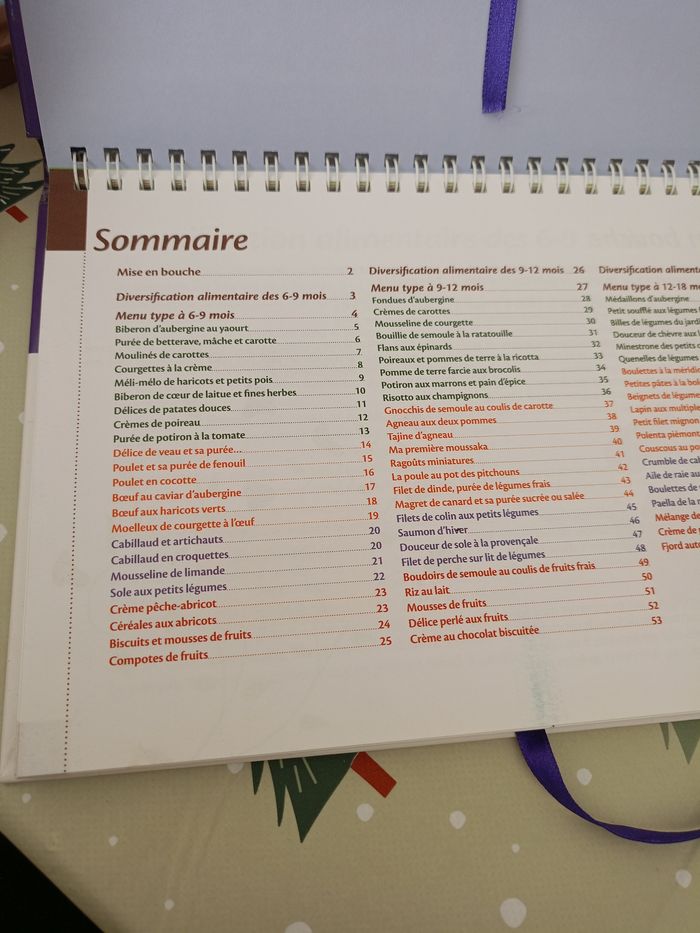 Sommaire
Mise en bouche 2
Diversification alimentaire des 6-9 mois 3
Menu type à 6-9 mois 4
Biberon d'aubergine au yaourt 5
Purée de betterave, mâche et carotte 6
Moulinés de carottes 7
Courgettes à la crème 8
Méli-mélo de haricots et petits pois 9
Biberon de cœur de laitue et fines herbes 10
Délices de patates douces 11
Crèmes de poireau 12
Purée de potiron à la tomate 13
Délice de veau et sa purée... 14
Poulet et sa purée de fenouil 15
Poulet en cocotte 16
Bœuf au caviar d'aubergine 17
Bœuf aux haricots verts 18
Moelleux de courgette à l'œuf 19
Cabillaud et artichauts 20
Cabillaud en croquettes 20
Mousseline de limande 21
Sole aux petits légumes 22
Crème pêche-abricot 23
Céréales aux abricots 23
Biscuits et mousses de fruits 24
Compotes de fruits 25
Diversification alimentaire des 9-12 mois 26
Menu type à 9-12 mois 27
Fondues d'aubergine 28
Crèmes de carottes 29
Mousseline de courgette 30
Bouillie de semoule à la ratatouille 31
Flans aux épinards 32
Poireaux et pommes de terre à la ricotta 33
Pomme de terre farcie aux brocolis 34
Potiron aux marrons et pain d'épice 35
Risotto aux champignons 36
Gnocchis de semoule au coulis de carotte 37
Agneau aux deux pommes 38
Tajine d'agneau 39
Ma première moussaka 40
Ragoûts miniatures 41
La poule au pot des pitchouns 42
Filet de dinde, purée de légumes frais 43
Magret de canard et sa purée sucrée ou salée 44
Filets de colin aux petits légumes 45
Saumon d'hiver 46
Douceur de sole à la provençale 47
Filet de perche sur lit de légumes 48
Boudoirs de semoule au coulis de fruits frais 49
Riz au lait 50
Mousses de fruits 51
Délice perlé aux fruits 52
Crème au chocolat biscuitée 53
Diversification
Menu type à 12-18
Médaillons d'aubergine
Petit soufflé aux légumes
Billes de légumes du
Douceur de chèvre aux
Minestrone des petits
Quenelles de légumes
Boulettes à la
Petites pâtes à la
Beignets de
Lapin aux
Petit filet mignon
Polenta
Couscous au
Crumble de
Aile de raie au
Boulettes de
Paella de la
Mélange de
Crème de
Fjord